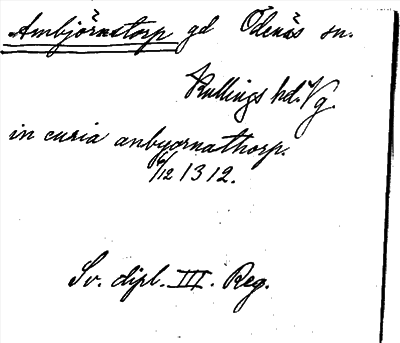 Ambjörnstorp gd Ödenäs sn.
Kullings hd. Vg.
in curia anbyornathorp.
16/12 1312.
Sv. dipl. III. Reg.